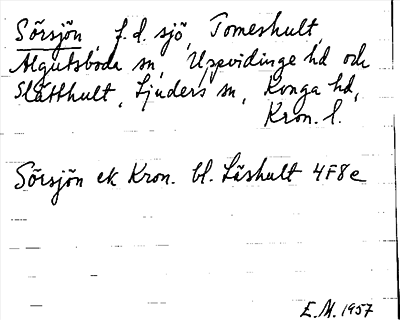 Sörsjön, f.d. sjö, Tomeshult,
Älgutsboda sn, Uppvidinge hd och
Slätthult, Ljuders sn, Konga hd,
Kron. l.
Sörsjön ek Kron. bl. Låshult 4F8e
E.M. 1957